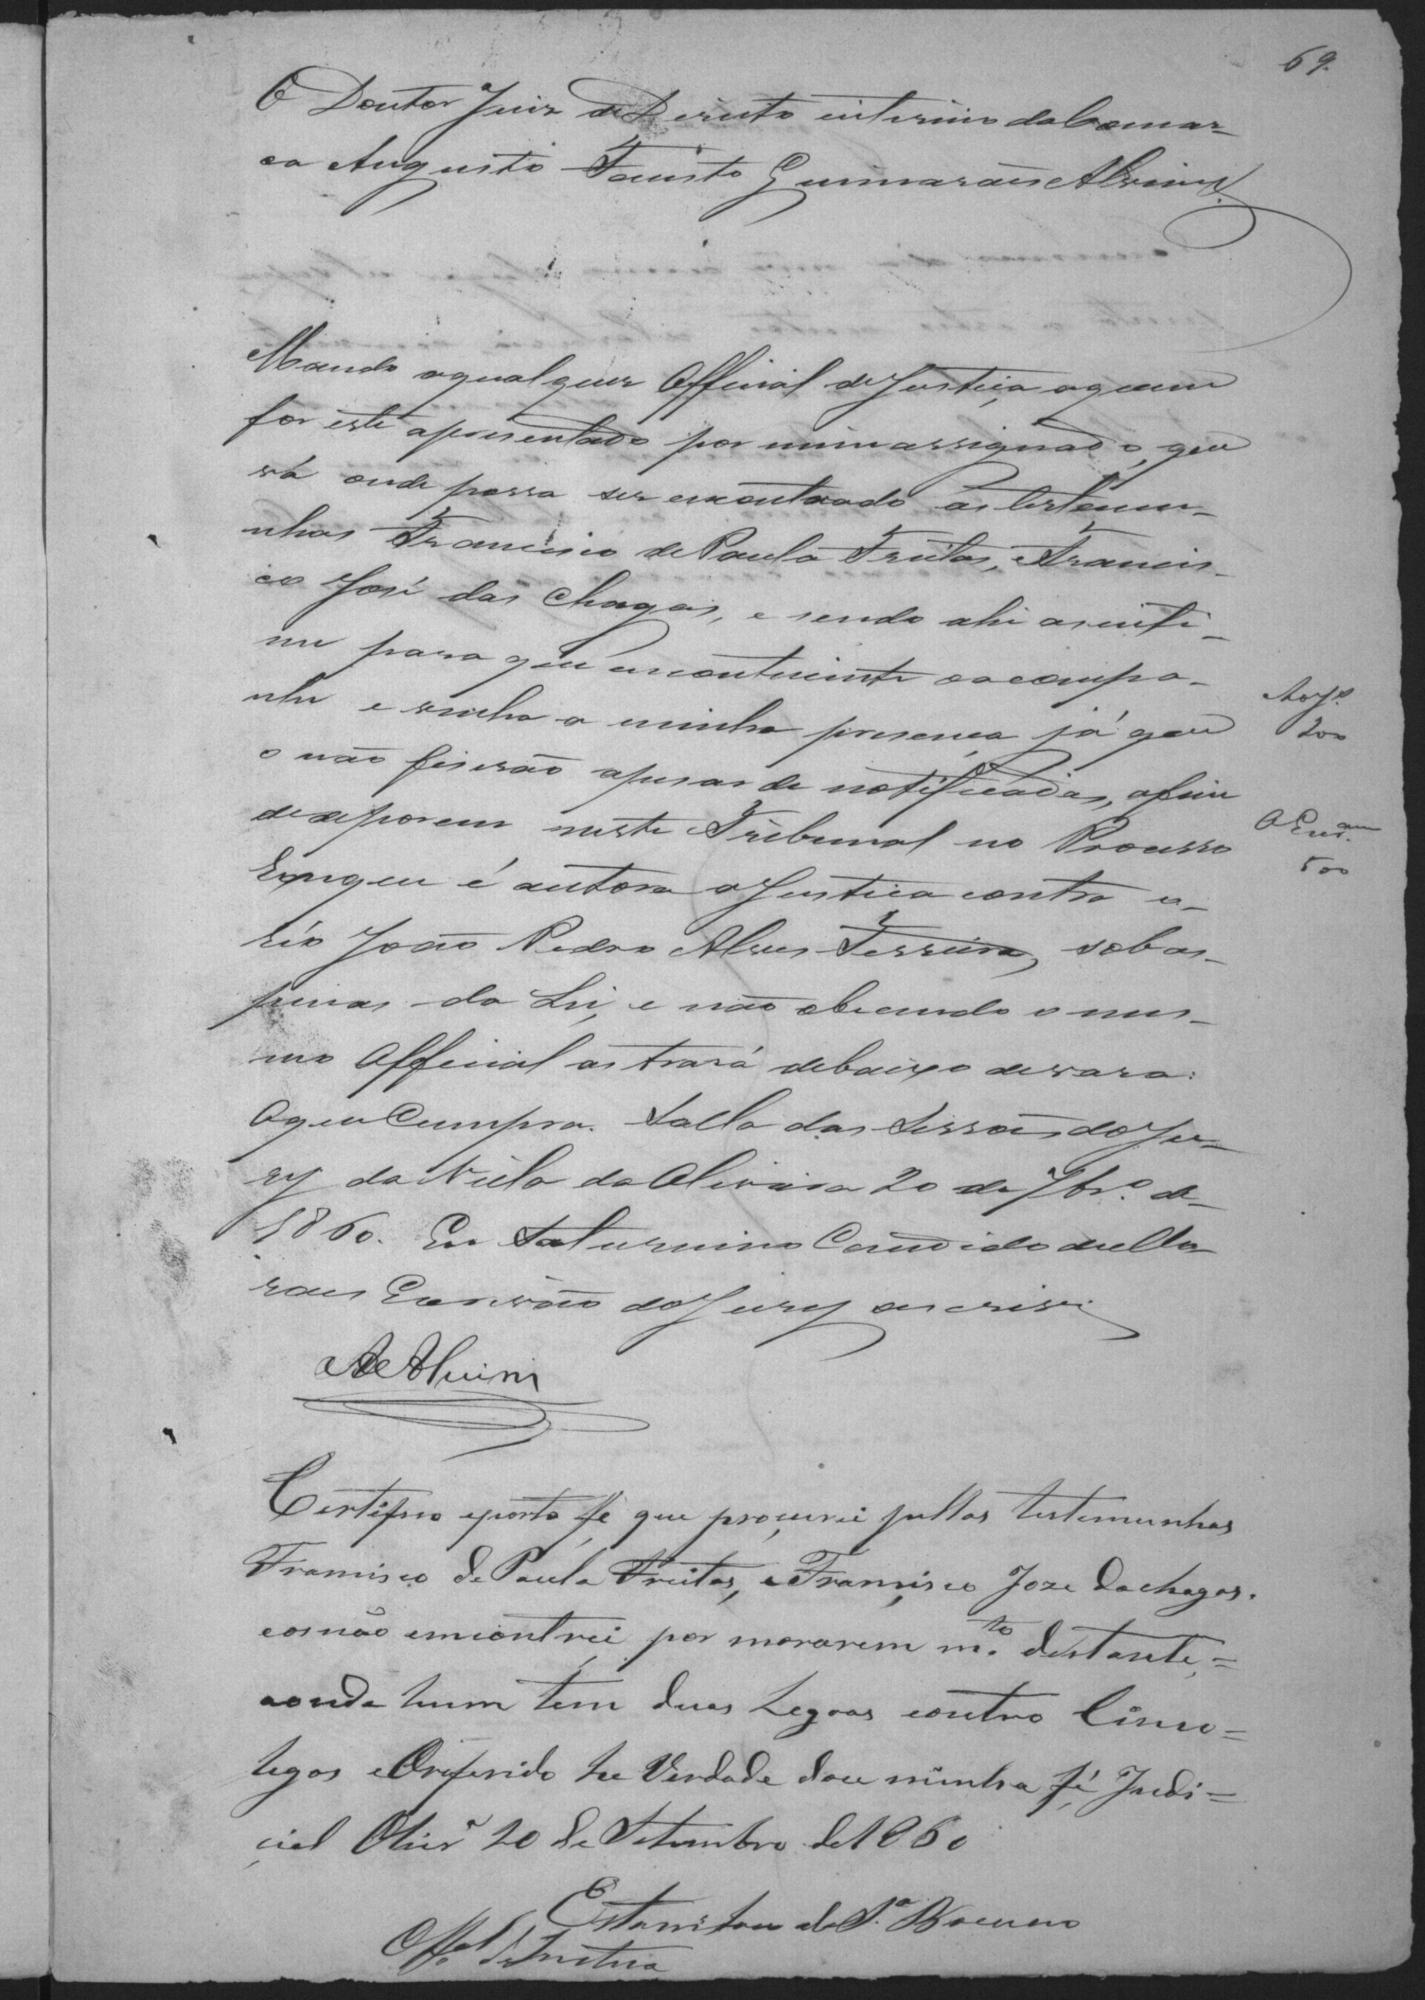 69.
O Doutor Juiz de Direito interino da Comar-
ca Augusto Fausto Guimarães Alvim
Mando a qual quer Official de Justiça a quem
for este apresentado por mim assignado, que
vá onde possa ser encontrado as testemu-
nhas Francisco de Paula Freitas, e Francis-
co José das Chagas, e sendo ahi as inti-
me para que encontinente o acompa-
nhe e venha a minha presença já que
o não fiserão apesar de notificadas, afim
de deporem neste Tribunal no Processo
Em que é autora a Justica contra o
réo João Pedro Alves Ferreira, sob as
penas da Lei, e não obecendo o mes-
mo Official as trará debaixo de vara:
O que Cumpra. Salla das Sessões do Ju-
ry da Villa da Oliveira 20 de 7br.o de
1860. Eu Saturnino Candido de Mo-
raes Escrivão do Jury o escrivi
Alvim
Ao J.
200
Ao Escr.am
500
Certifico e porto fé que procurei pellas testemunhas
Francisco de Paula Freitas, e Francisco Joze Dachagas.
e os não emcontrei por morarem m.to distante, =
aonda hum tem duas Legoas e outro Cinco =
legos e O referido he Verdade dou minha fé Judi =
cial Olivr.a 20 de Setembro de 1860
Estanislau da S.a Bueno
Off.al de Justica